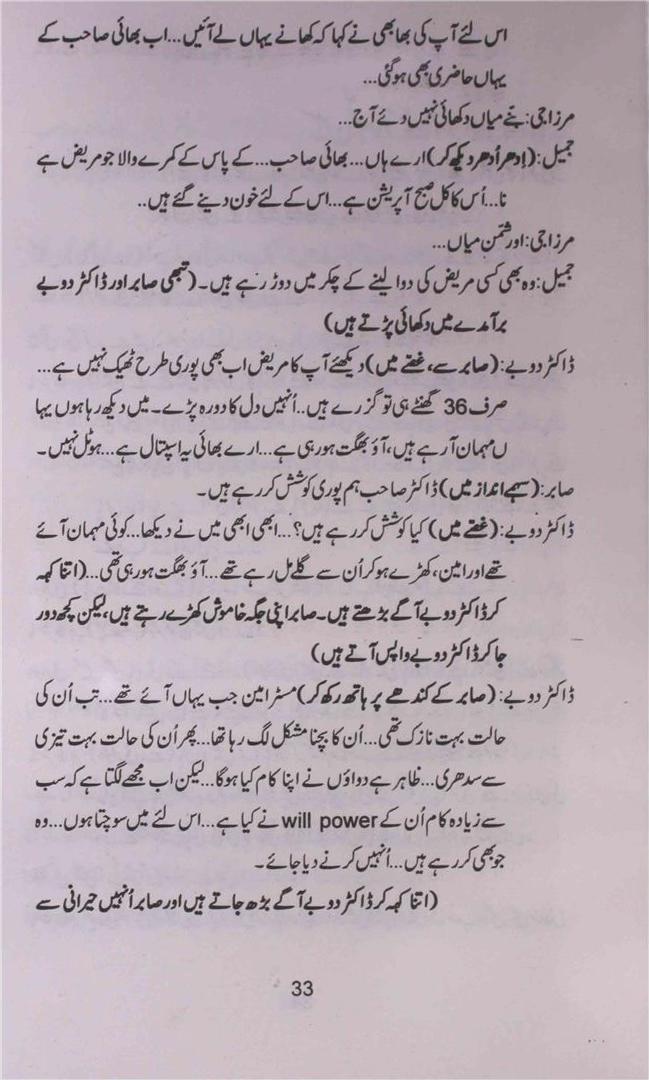 اس لئے آپ کی بھابھی نے کہا کہ کھانے یہاں لے آئیں...اب بھائی صاحب کے
یہاں حاضری بھی ہو گئی...
مرزا جی: بنّے میاں دکھائی نہیں دئے آج...
جمیل: (اِدھر اُدھر دیکھ کر) ارے ہاں...بھائی صاحب...کے پاس کے کمرے والا جو مریض ہے
نا...اُس کا کل صبح آپریشن ہے...اس کے لئے خون دینے گئے ہیں..
مرزا جی: اور شمّن میاں...
جمیل: وہ بھی کسی مریض کی دوا لینے کے چکر میں دوڑ رہے ہیں۔ (تبھی صابر اور ڈاکٹر دوبے
برآمدے میں دکھائی پڑتے ہیں)
ڈاکٹر دوبے: (صابر سے، غصّے میں) دیکھئے آپ کا مریض اب بھی پوری طرح ٹھیک نہیں ہے...
صرف 36 گھنٹے ہی تو گزرے ہیں..اُنہیں دل کا دورہ پڑے۔ میں دیکھ رہا ہوں یہا
ں مہمان آ رہے ہیں، آؤ بھگت ہو رہی ہے...ارے بھائی یہ اسپتال ہے...ہوٹل نہیں۔
صابر: (سہمے انداز میں) ڈاکٹر صاحب ہم پوری کوشش کر رہے ہیں۔
ڈاکٹر دوبے: (غصّے میں) کیا کوشش کر رہے ہیں؟...ابھی ابھی میں نے دیکھا...کوئی مہمان آئے
تھے اور امین، کھڑے ہو کر اُن سے گلے مل رہے تھے...آؤ بھگت ہو رہی تھی...(اتنا کہہ
کر ڈاکٹر دوبے آگے بڑھتے ہیں۔ صابر اپنی جگہ خاموش کھڑے رہتے ہیں، لیکن کچھ دور
جا کر ڈاکٹر دوبے واپس آتے ہیں)
ڈاکٹر دوبے: (صابر کے کندھے پر ہاتھ رکھ کر) مسٹر امین جب یہاں آئے تھے...تب اُن کی
حالت بہت نازک تھی...اُن کا بچنا مشکل لگ رہا تھا...پھر اُن کی حالت بہت تیزی
سے سدھری...ظاہر ہے دواؤں نے اپنا کام کیا ہوگا...لیکن اب مجھے لگتا ہے کہ سب
سے زیادہ کام اُن کے will power نے کیا ہے...اس لئے میں سوچتا ہوں...وہ
جو بھی کر رہے ہیں...اُنہیں کرنے دیا جائے۔
(اتنا کہہ کر ڈاکٹر دوبے آگے بڑھ جاتے ہیں اور صابر اُنہیں حیرانی سے
33